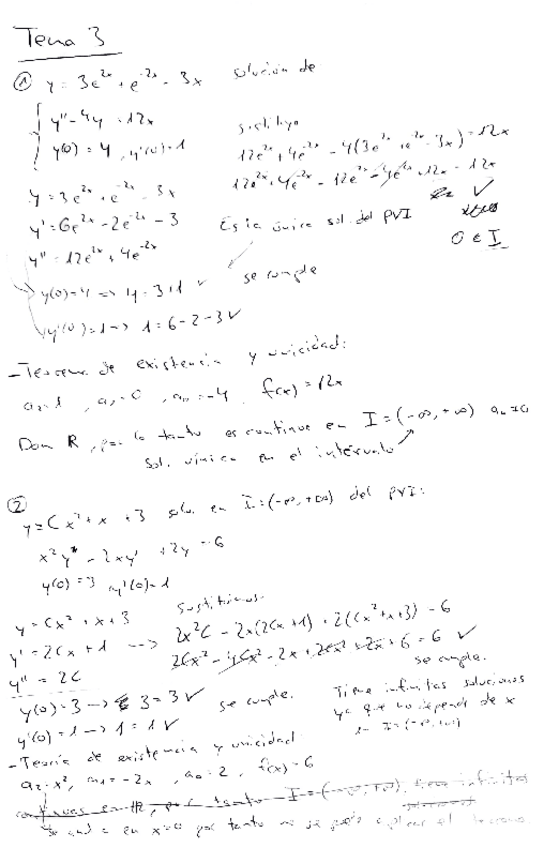 Tema 3
① y = 3e^{2x} + e^{-2x} - 3x solución de
y'' - 4y = 12x
y(0) = 4, y'(0) = 1
sustituyo
12e^{2x} + 4e^{-2x} - 4(3e^{2x} + e^{-2x} - 3x) = 12x
12e^{2x} + 4e^{-2x} - 12e^{2x} - 4e^{-2x} + 12x = 12x
✓
y = 3e^{2x} + e^{-2x} - 3x
y' = 6e^{2x} - 2e^{-2x} - 3
Es la única sol. del PVI
0 ∈ I
y'' = 12e^{2x} + 4e^{-2x}
y(0) = 4 => 4 = 3 + 1 ✓ se cumple
y'(0) = 1 -> 1 = 6 - 2 - 3 ✓
- Teorema de existencia y unicidad:
a₂ = 1, a₁ = 0, a₀ = -4, f(x) = 12x
Dom R, por lo tanto es continua en I = (-∞, +∞)
sol. única en el intervalo
② y = Cx² + x + 3 soluc. en I = (-∞, +∞) del PVI:
x²y'' - 2xy' + 2y = 6
y(0) = 3 y'(0) = 1
y = Cx² + x + 3
Sustituimos.
y' = 2Cx + 1 --> 2x²C - 2x(2Cx + 1) + 2(Cx² + x + 3) = 6
y'' = 2C
2Cx² - 4Cx² - 2x + 2Cx² + 2x + 6 = 6 ✓
se cumple.
y(0) = 3 -> 3 = 3 ✓ se cumple.
y'(0) = 1 -> 1 = 1 ✓
Tiene infinitas soluciones
ya que no depende de x
I = (-∞, +∞)
- Teoría de existencia y unicidad
a₂ = x², a₁ = -2x, a₀ = 2, f(x) = 6
continuas en R, por tanto I = (-∞, +∞), tiene infinitas
en x=0 por tanto no se puede aplicar el teorema